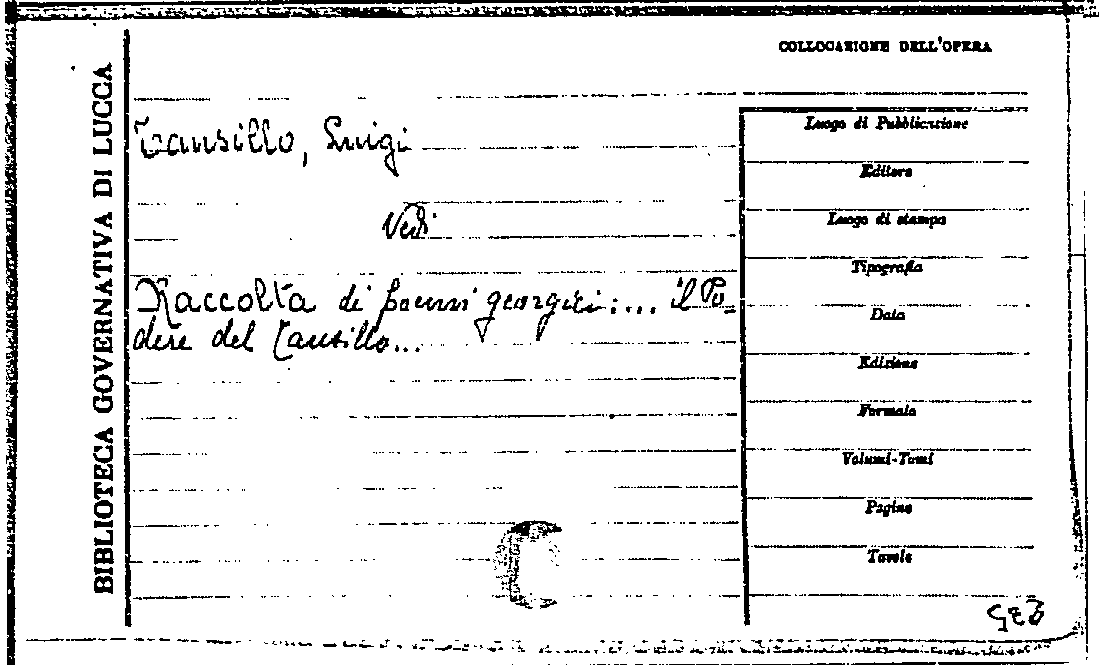 COLLOCAZIONE DELL'OPERA
BIBLIOTECA GOVERNATIVA DI LUCCA
Tansillo, Luigi
Vedi
Raccolta di poemi georgici:... il Po=
dere del Tansillo...
Luogo di Pubblicazione
Editore
Luogo di stampa
Tipografia
Data
Edizione
Formato
Volumi-Tomi
Pagine
Tavole
C